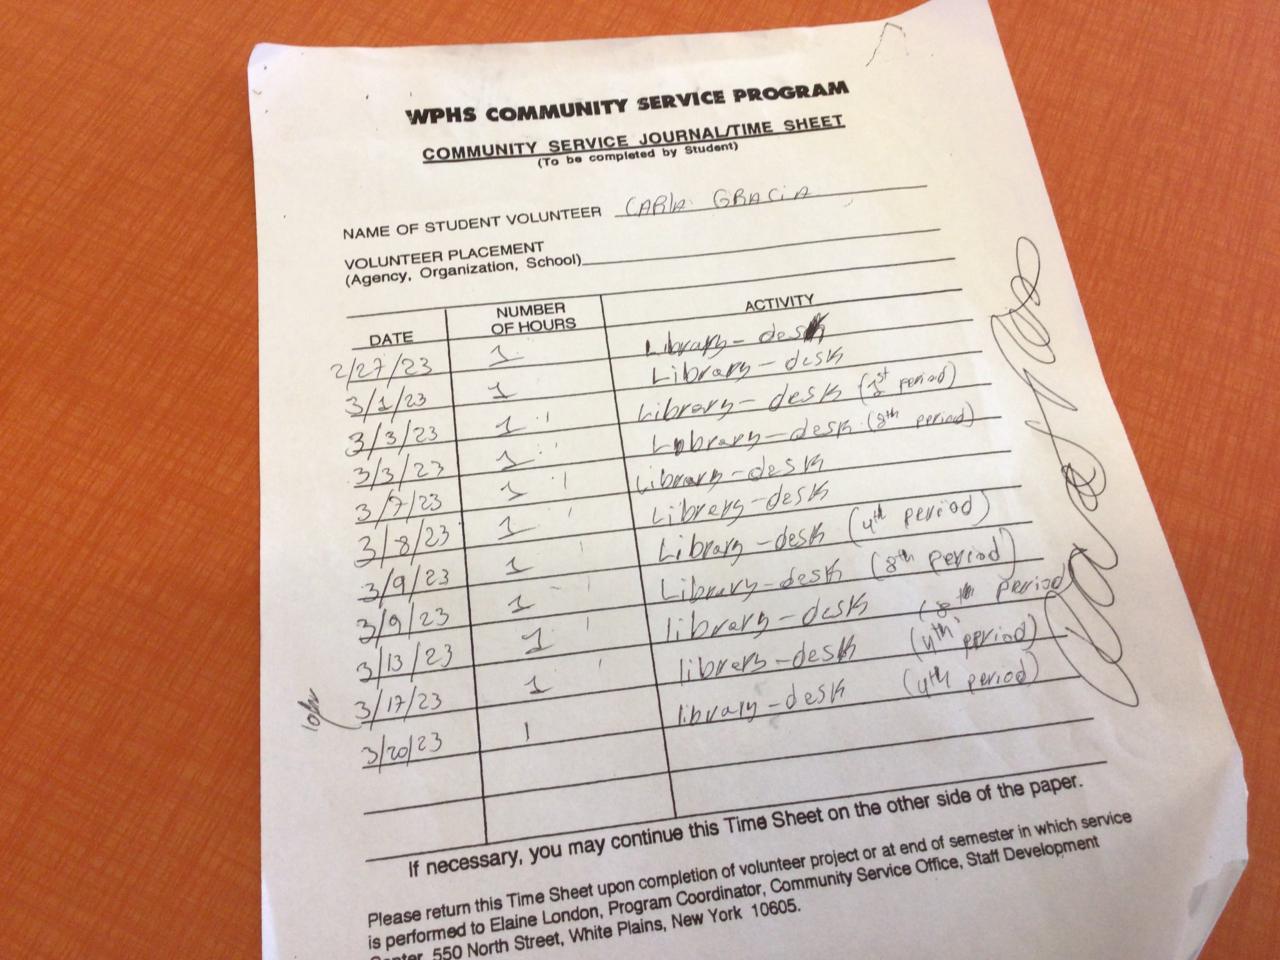 WPHS COMMUNITY SERVICE PROGRAM
COMMUNITY SERVICE JOURNAL/TIME SHEET
(To be completed by Student)
NAME OF STUDENT VOLUNTEER CARLA GRACIA
VOLUNTEER PLACEMENT
(Agency, Organization, School)
DATE NUMBER OF HOURS ACTIVITY
2/27/23 1 Library-desk
3/1/23 1 Library-desk
3/3/23 1 Library-desk (1st period)
3/3/23 1 Library-desk (8th period)
3/7/23 1 Library-desk
3/8/23 1 Library-desk
3/9/23 1 Library-desk (4th period)
3/9/23 1 Library-desk (8th period)
3/13/23 1 library-desk (8th period
3/17/23 1 library-desk (4th period)
3/20/23 1 library-desk (4th period)
If necessary, you may continue this Time Sheet on the other side of the paper.
Please return this Time Sheet upon completion of volunteer project or at end of semester in which service
is performed to Elaine London, Program Coordinator, Community Service Office, Staff Development
Center, 550 North Street, White Plains, New York 10605.